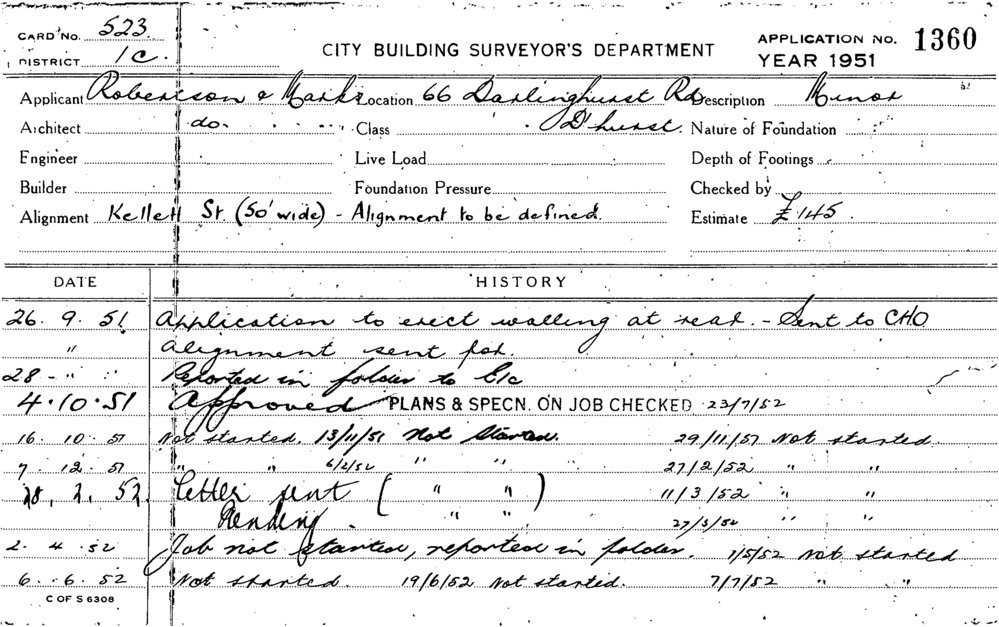 CARD No. 523
DISTRICT 1C.
CITY BUILDING SURVEYOR'S DEPARTMENT
APPLICATION NO. 1360
YEAR 1951
Applicant Robertson & Marks Location 66 Darlinghurst Rd Description Minor
Architect do. Class D'hurst. Nature of Foundation
Engineer Live Load Depth of Footings
Builder Foundation Pressure Checked by
Alignment Kellett St. (50' wide) - Alignment to be defined. Estimate £145
DATE HISTORY
26. 9. 51 Application to erect walling at rear. - Sent to CHO
" Alignment sent for.
28 - " " Reported in folder to
4.10.51 Approved PLANS & SPECN. ON JOB CHECKED 23/7/52
16. 10. 51 Not started. 13/11/51 Not Started. 29/11/51 Not started.
7. 12. 51 " " 6/2/52 " " 27/2/52 " "
28. 2. 52. Letter sent ( " " ) 11/3/52 " "
Pending. " " 27/3/52 " "
2. 4. 52 Job not started, reported in folder. 1/5/52 Not started
6. 6. 52 Not started. 19/6/52 Not started. 7/7/52 " "
C OF S 6308